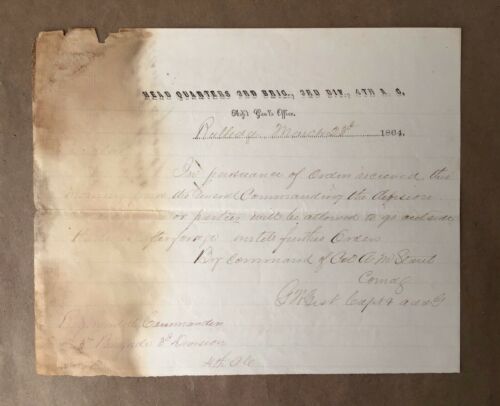 HEAD QUARTERS 3RD BRIG., 3RD DIV., 4TH A. C.
Adj't Gen'l's Office,
Rutledge March 23d 1864.
In pursuance of Orders recieved this
morning from the General Commanding the division
or parties will be allowed to go outside
for forage untill further Orders
By Command of Col
Comdg
Capt & a a a G
Commander
Brigade 3d Division
4th A C